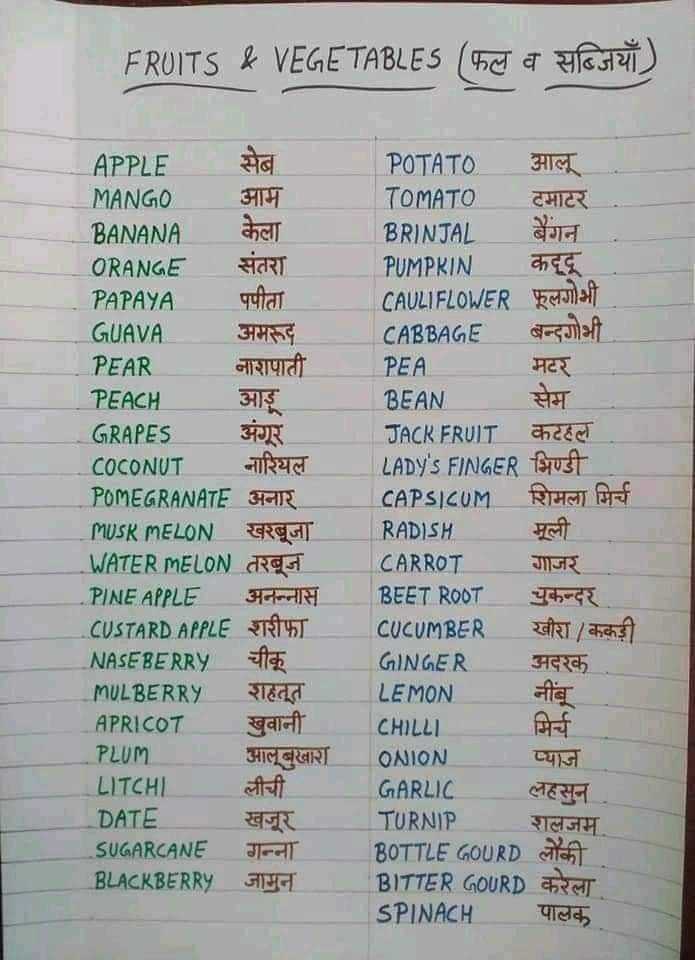 FRUITS & VEGETABLES (फल व सब्जियाँ)
APPLE सेब
MANGO आम
BANANA केला
ORANGE संतरा
PAPAYA पपीता
GUAVA अमरूद
PEAR नाशपाती
PEACH आड़ू
GRAPES अंगूर
COCONUT नारियल
POMEGRANATE अनार
MUSK MELON खरबूजा
WATER MELON तरबूज
PINE APPLE अनन्नास
CUSTARD APPLE शरीफा
NASEBERRY चीकू
MULBERRY शहतूत
APRICOT खुवानी
PLUM आलूबुखारा
LITCHI लीची
DATE खजूर
SUGARCANE गन्ना
BLACKBERRY जामुन
POTATO आलू
TOMATO टमाटर
BRINJAL बैंगन
PUMPKIN कद्दू
CAULIFLOWER फूलगोभी
CABBAGE बन्दगोभी
PEA मटर
BEAN सेम
JACK FRUIT कटहल
LADY'S FINGER भिण्डी
CAPSICUM शिमला मिर्च
RADISH मूली
CARROT गाजर
BEET ROOT चुकन्दर
CUCUMBER खीरा / ककड़ी
GINGER अदरक
LEMON नींबू
CHILLI मिर्च
ONION प्याज
GARLIC लहसुन
TURNIP शलजम
BOTTLE GOURD लौकी
BITTER GOURD करेला
SPINACH पालक